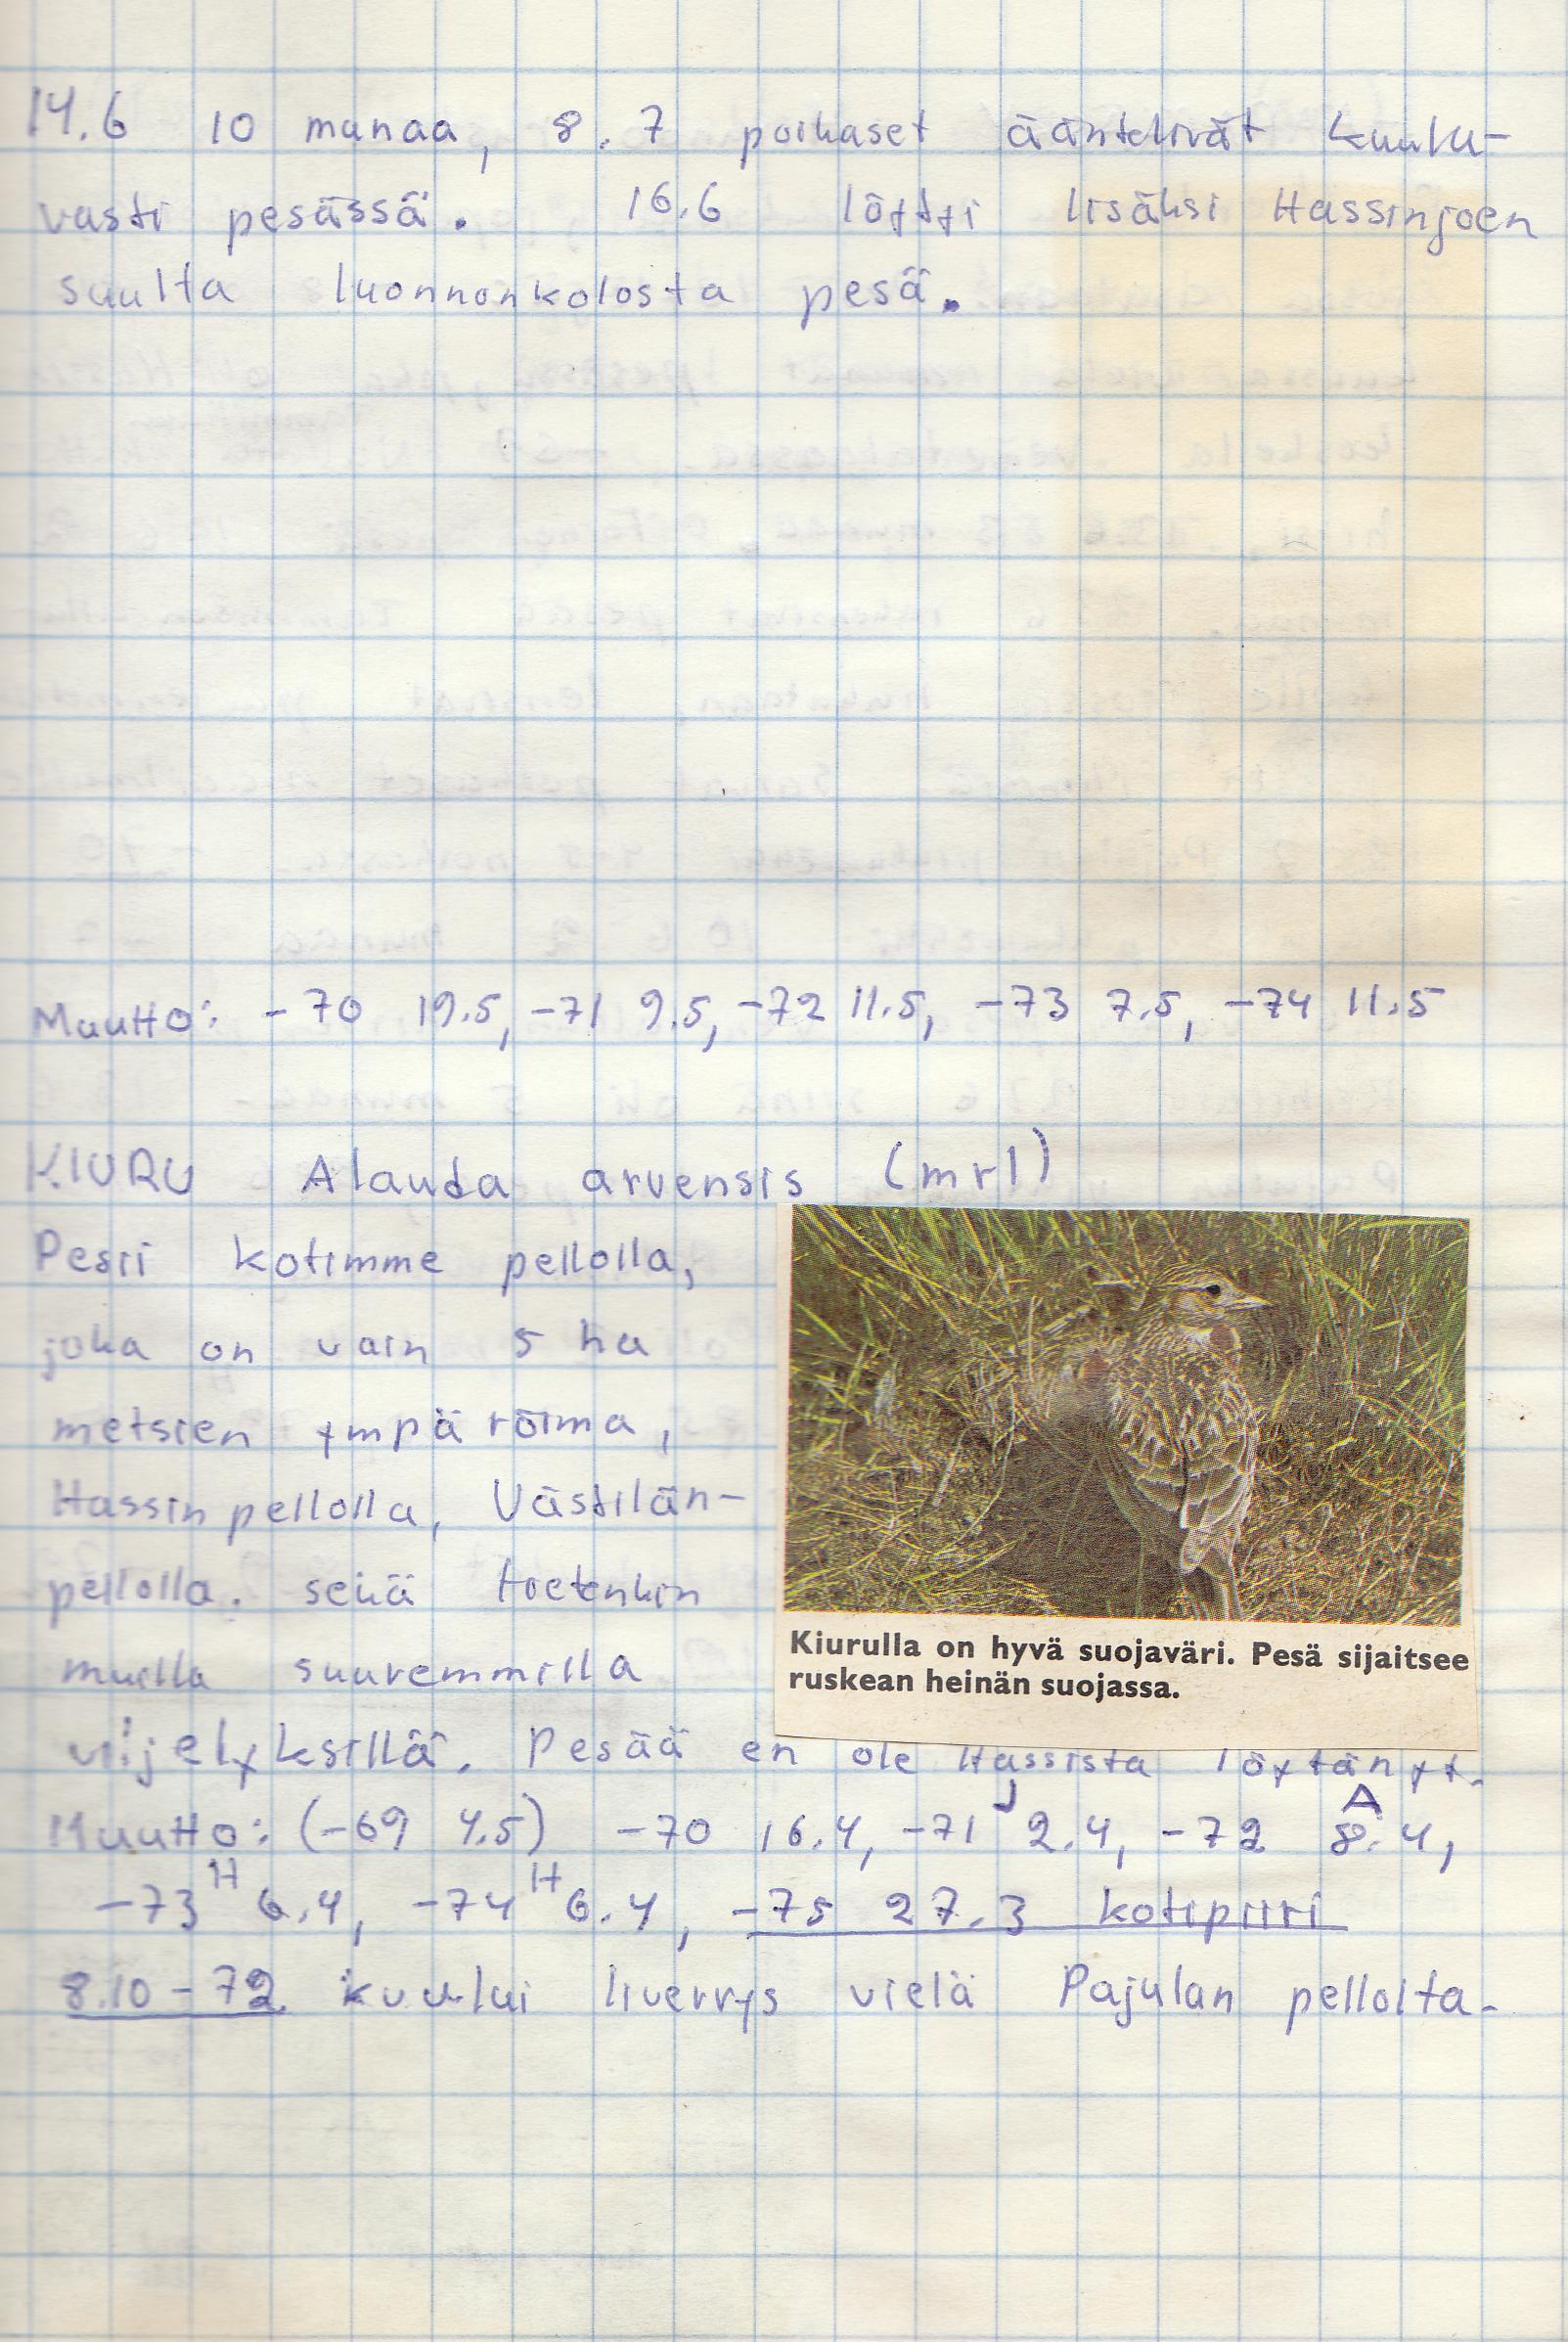 14.6 10 munaa, 8.7 poikaset ääntelivät kuulu-
vasti pesässä. 16.6 löytyi lisäksi Hassinjoen
suulta luonnonkolosta pesä.
Muutto: -70 19.5, -71 9.5, -72 11.5, -73 7.5, -74 11.5
KIURU Alauda arvensis (mrl)
Pesii kotimme pellolla,
joka on vain 5 ha
metsien ympäröimä,
Hassinpellolla, Västilän-
pellolla. sekä tietenkin
muilla suuremmilla
viljelyksillä. Pesää en ole Hassista löytänyt.
Muutto: (-69 4.5) -70 16.4, -71 J 2.4, -72 A 8.4,
-73 H 6.4, -74 H 6.4, -75 27.3 kotipiiri
8.10-72 kuului liverrys vielä Pajulan pellolta.
Kiurulla on hyvä suojaväri. Pesä sijaitsee
ruskean heinän suojassa.